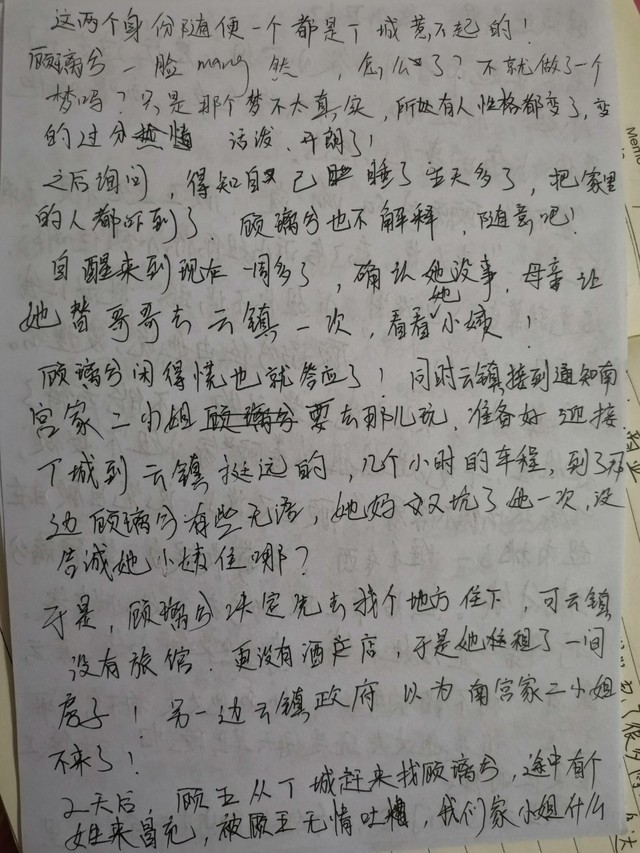 这两个身份随便一个都是丁城惹不起的！
顾璃兮一脸mang然，怎么了？不就做了一个
梦吗？只是那个梦不太真实，所有人性格都变了，变
的过分 活泼、开朗了！
之后询问，得知自己睡了三天多了，把家里
的人都吓到了，顾璃兮也不解释，随意吧！
自醒来到现在一周多了，确认她没事，母亲让
她替哥哥去云镇一次，看看她小姨！
顾璃兮闲得慌也就答应了！同时云镇接到通知南
宫家二小姐要去那儿玩，准备好迎接
丁城到云镇挺远的，几个小时的车程，到了那
边顾璃兮有些无语，她妈又坑了她一次，没
告诫她小姨住哪？
于是，顾璃兮决定先去找个地方住下，可云镇
没有旅馆，更没有酒店，于是她租了一间
房子！另一边云镇政府以为南宫家二小姐
不来了！
2天后，顾玉从丁城赶来找顾璃兮，途中有个
女生来冒充，被顾玉无情吐槽，我们家小姐什么